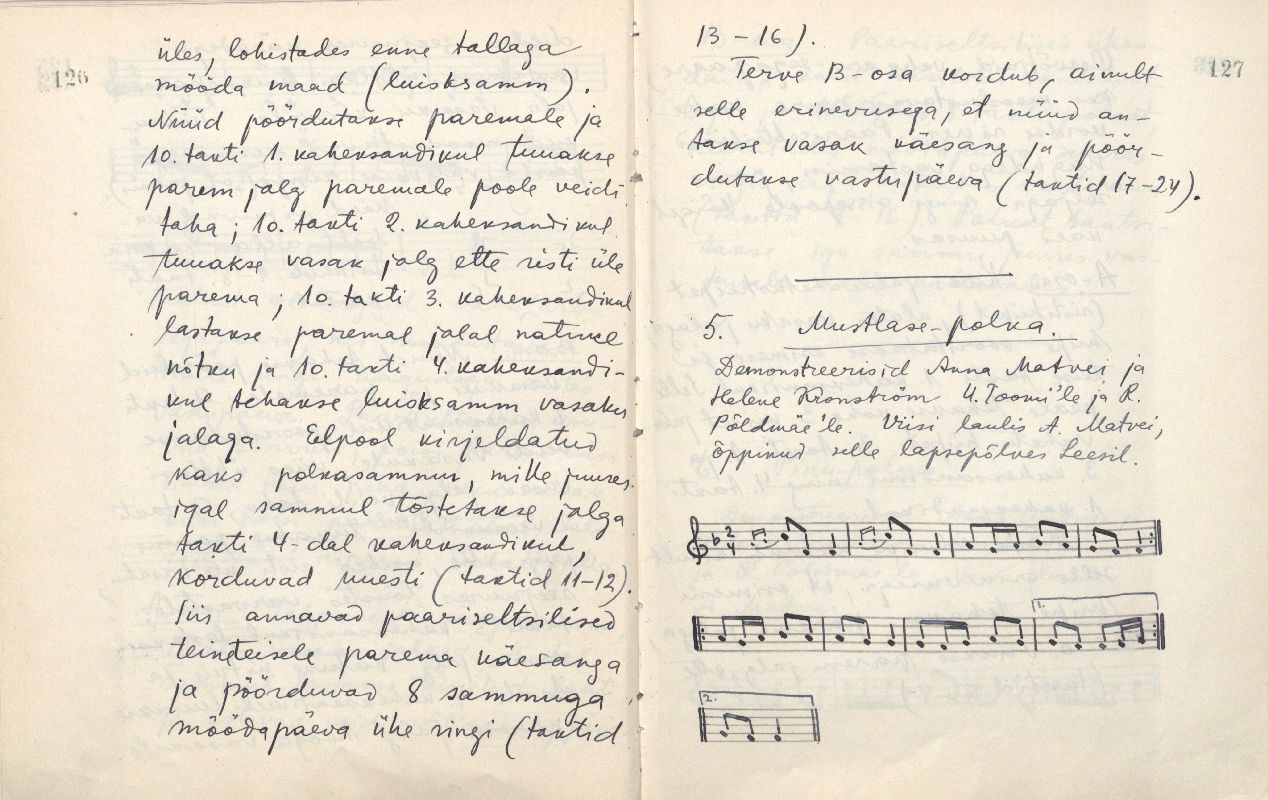 126
üles, lohistades enne tallaga
mööda maad (luisksamm).
Nüüd pöördutakse paremale ja
10. takti 1. kaheksandikul tuuakse
parem jalg paremale poole veidi
taha; 10. takti 2. kaheksandikul
tuuakse vasak jalg ette risti üle
parema; 10. takti 3. kaheksandikul
lastakse paremal jalal natuke
nõtku ja 10. takti 4. kaheksandi-
kul tehakse luisksamm vasaku
jalaga. Eelpool kirjeldatud
kaks polkasammu, mille juures
igal sammul tõstetakse jalga
takti 4-dal kaheksandikul,
korduvad uuesti (taktid 11-12).
Siis annavad paariseltsilised
teineteisele parema käesanga
ja pöörduvad 8 sammuga
möödapäeva ühe ringi (taktid
127
13-16).
Terve B-osa kordub, ainult
selle erinevusega, et nüüd an-
takse vasak käesang ja pöör-
dutakse vastupäeva (taktid 17-24).
5. Mustlase-polka.
Demonstreerisid Anna Matvei ja
Helene Kronström U. Toomi'le ja R.
Põldmäe'le. Viisi laulis A. Matvei,
õppinud selle lapsepõlves Leesil.
2
4
1.
2.